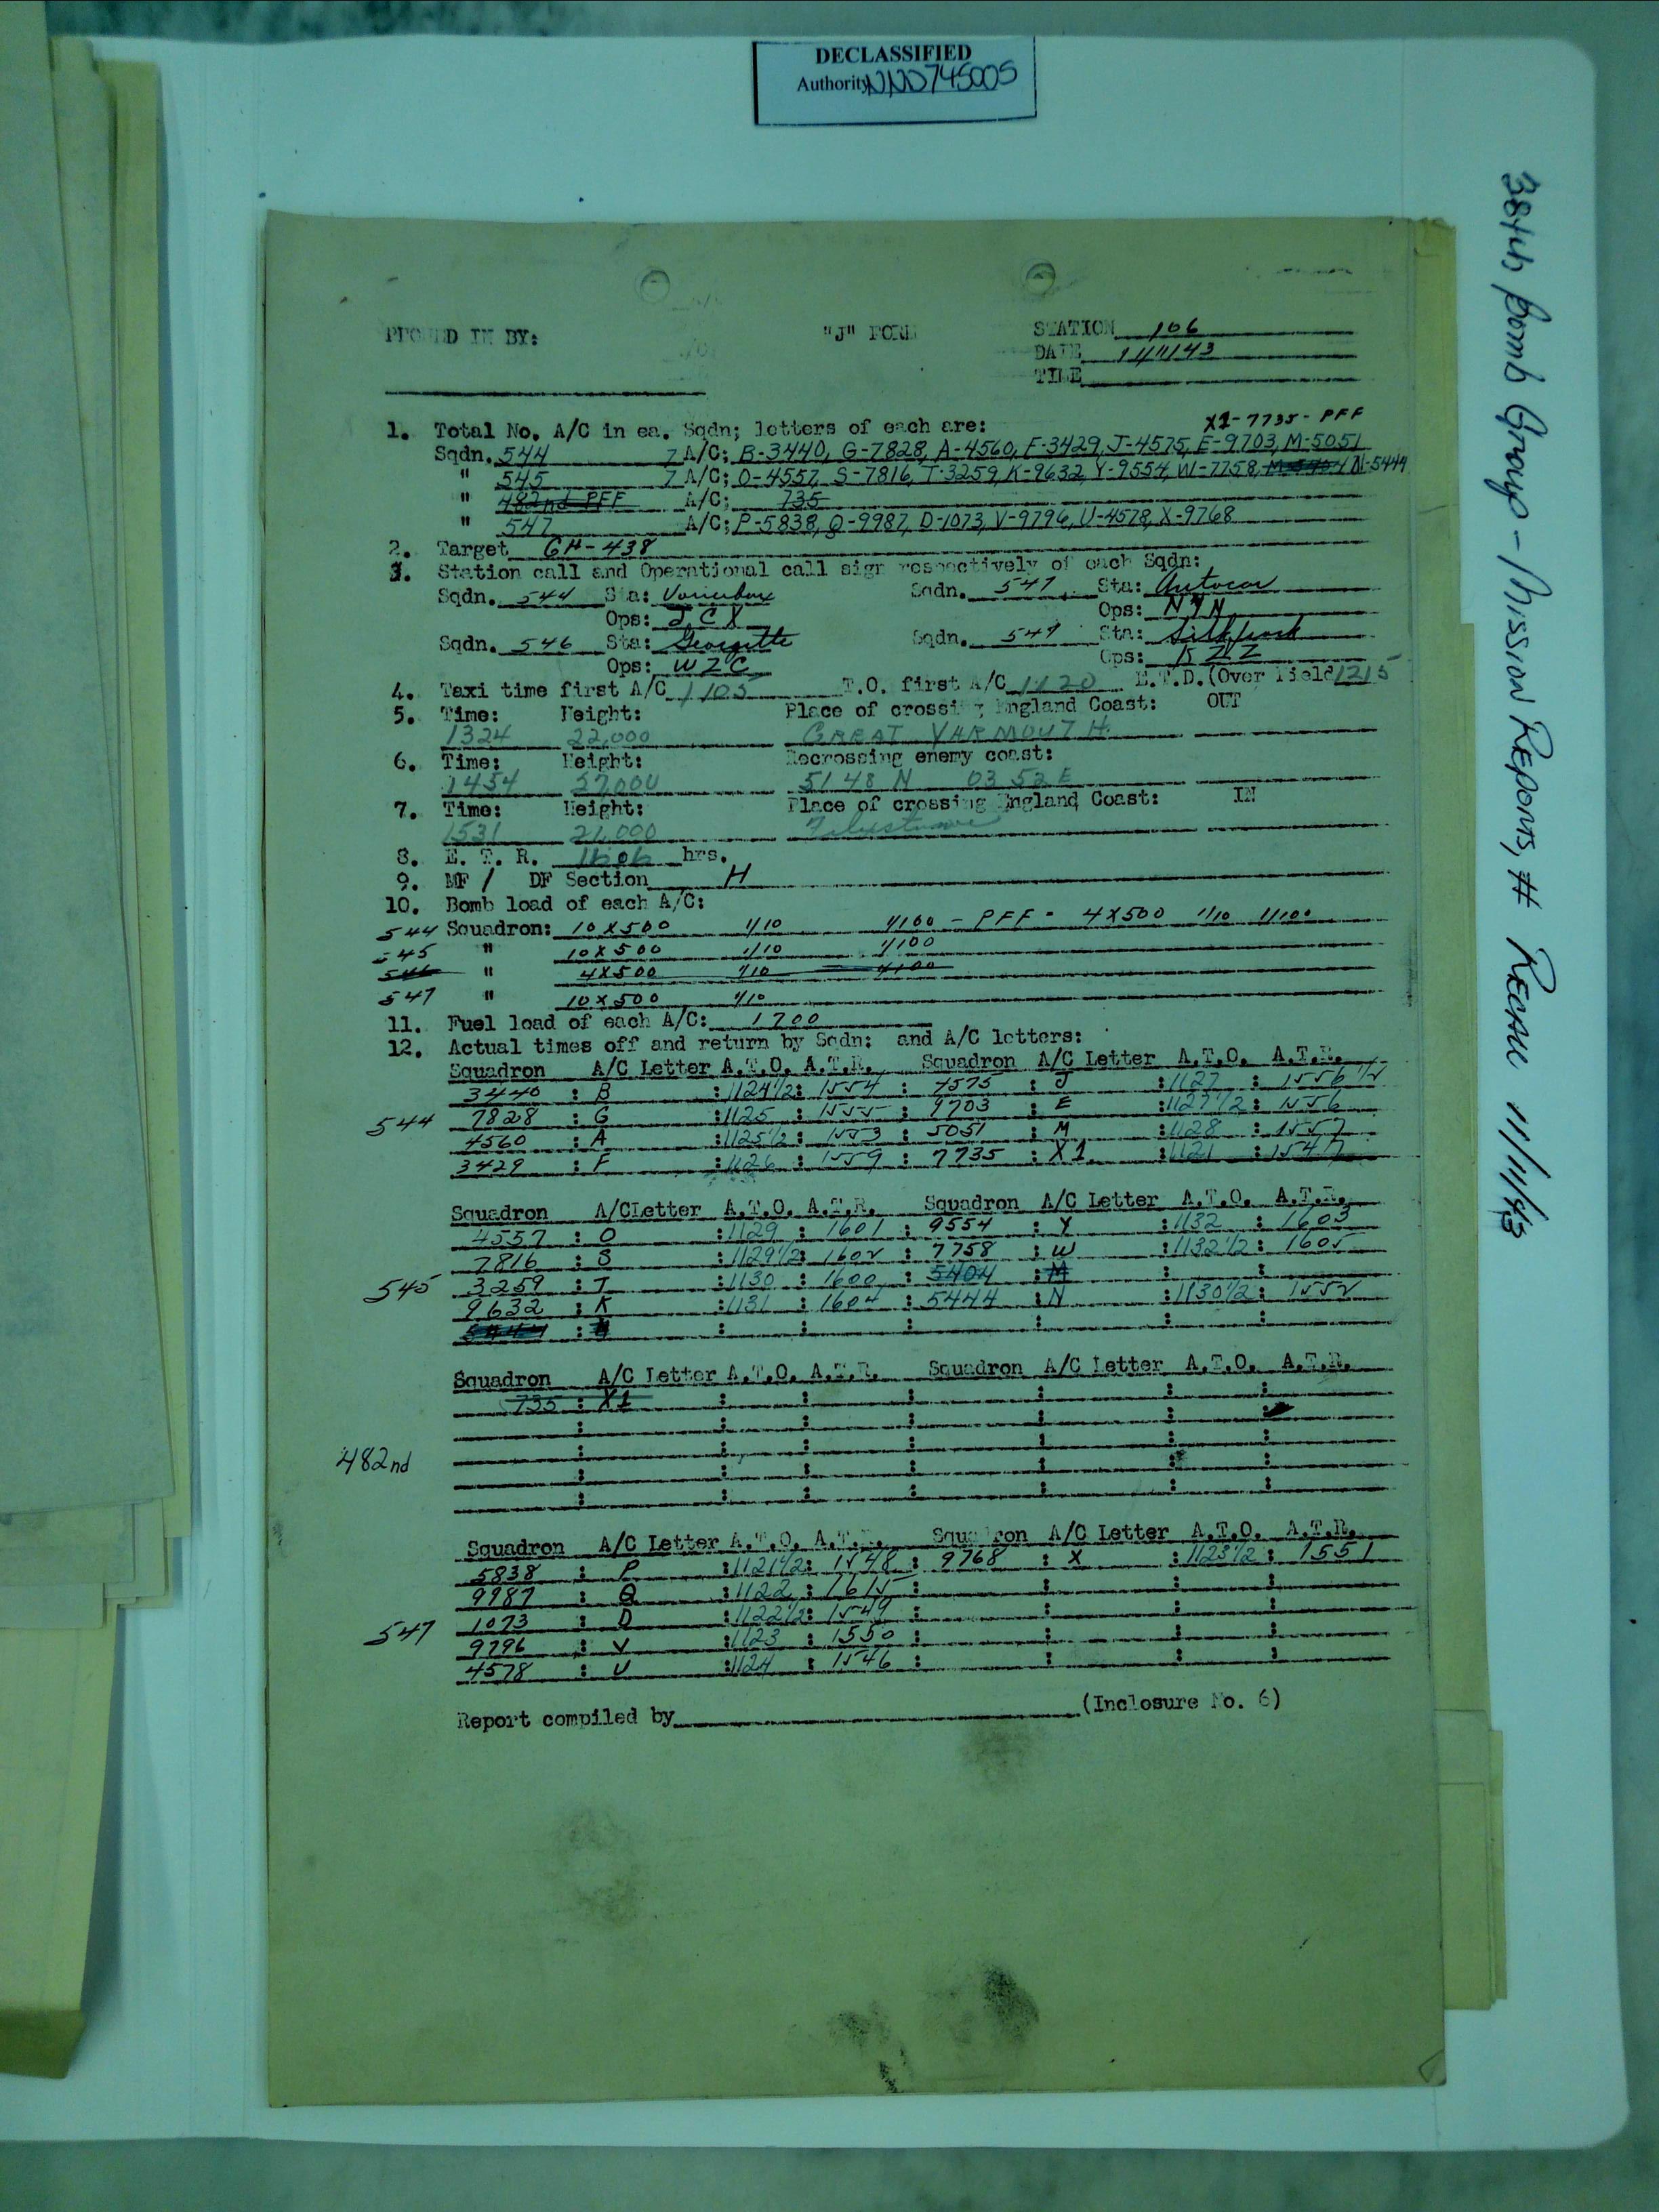 DECLASSIFIED
Authority NND745005
384th Bomb Group - Mission Reports, # Recall 11/11/43
PHONED IN BY:
"J" FORM
STATION 106
DATE 11/11/43
TIME
X1-7735-PFF
1. Total No. A/C in ea. Sqdn; letters of each are:
Sqdn. 544 7 A/C; B-3440, G-7828, A-4560, F-3429, J-4575, E-9703, M-5051
" 545 7 A/C; O-4557, S-7816, T-3259, K-9632, Y-9554, W-7758, M-5404 N-5444
" 482nd PFF A/C; 735
" 547 A/C; P-5838, Q-9987, D-1073, V-9796, U-4578, X-9768
2. Target GH-438
3. Station call and Operational call sign respectively of each Sqdn:
Sqdn. 544 Sta: Sqdn. 547 Sta: Autocar
Ops: JCX Ops:
Sqdn. 546 Sta: Georgette Sqdn. 549 Sta:
Ops: WZC Ops:
4. Taxi time first A/C 1105 T.O. first A/C 1120 E.T.D. (Over Field 1215
5. Time: Height: Place of crossing England Coast: OUT
1324 22,000 GREAT YARMOUTH
6. Time: Height: Recrossing enemy coast:
1454 27,000 51 48 N 03 52 E
7. Time: Height: Place of crossing England Coast: IN
1531 21,000
8. E. T. R. 1606 hrs.
9. MF / DF Section H
10. Bomb load of each A/C:
544 Squadron: 10X500 1/10 1/100 - PFF - 4X500 1/10 1/100
545 " 10X500 1/10 1/100
546 " 4X500 1/10 1/100
547 " 10X500 1/10
11. Fuel load of each A/C: 1700
12. Actual times off and return by Sqdn: and A/C letters:
Squadron A/C Letter A.T.O. A.T.R. Squadron A/C Letter A.T.O. A.T.R.
3440 : B :1124½: 1554 : 4575 : J :1127 : 1556½
544
7828 : G :1125 : 1555 : 9703 : E :1127½: 1556
4560 : A :1125½: 1553 : 5051 : M :1128 : 1557
3429 : F :1126 : 1559 : 7735 : X1 :1121 : 1547
Squadron A/CLetter A.T.O. A.T.R. Squadron A/C Letter A.T.O. A.T.R.
4557 : O :1129 : 1601 : 9554 : Y :1132 : 1603
7816 : S :1129½: 1602 : 7758 : W :1132½: 1605
545
3259 : T :1130 : 1600 : 5404 : M : :
9632 : K :1131 : 1604 : 5444 : N :1130½: 1552
Squadron A/C Letter A.T.O. A.T.R. Squadron A/C Letter A.T.O. A.T.R.
735 : X1
482nd
Squadron A/C Letter A.T.O. A.T.R. Squadron A/C Letter A.T.O. A.T.R.
5838 : P :1121½: 1548 : 9768 : X :1123½: 1551
9987 : Q :1122 : 1615 :
1073 : D :1122½: 1549 :
547
9796 : V :1123 : 1550 :
4578 : U :1124 : 1546 :
Report compiled by (Inclosure No. 6)